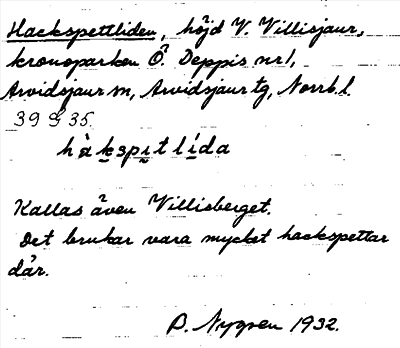 Hackspettliden, höjd V. Villisjaur,
kronoparken Ö. Deppis nr 1,
Arvidsjaur sn, Arvidsjaur tg, Norrb. l.
39 G 35
hàkspitlída
Kallas även Villisberget.
Det brukar vara mycket hackspettar
där.
P. Nygren 1932.